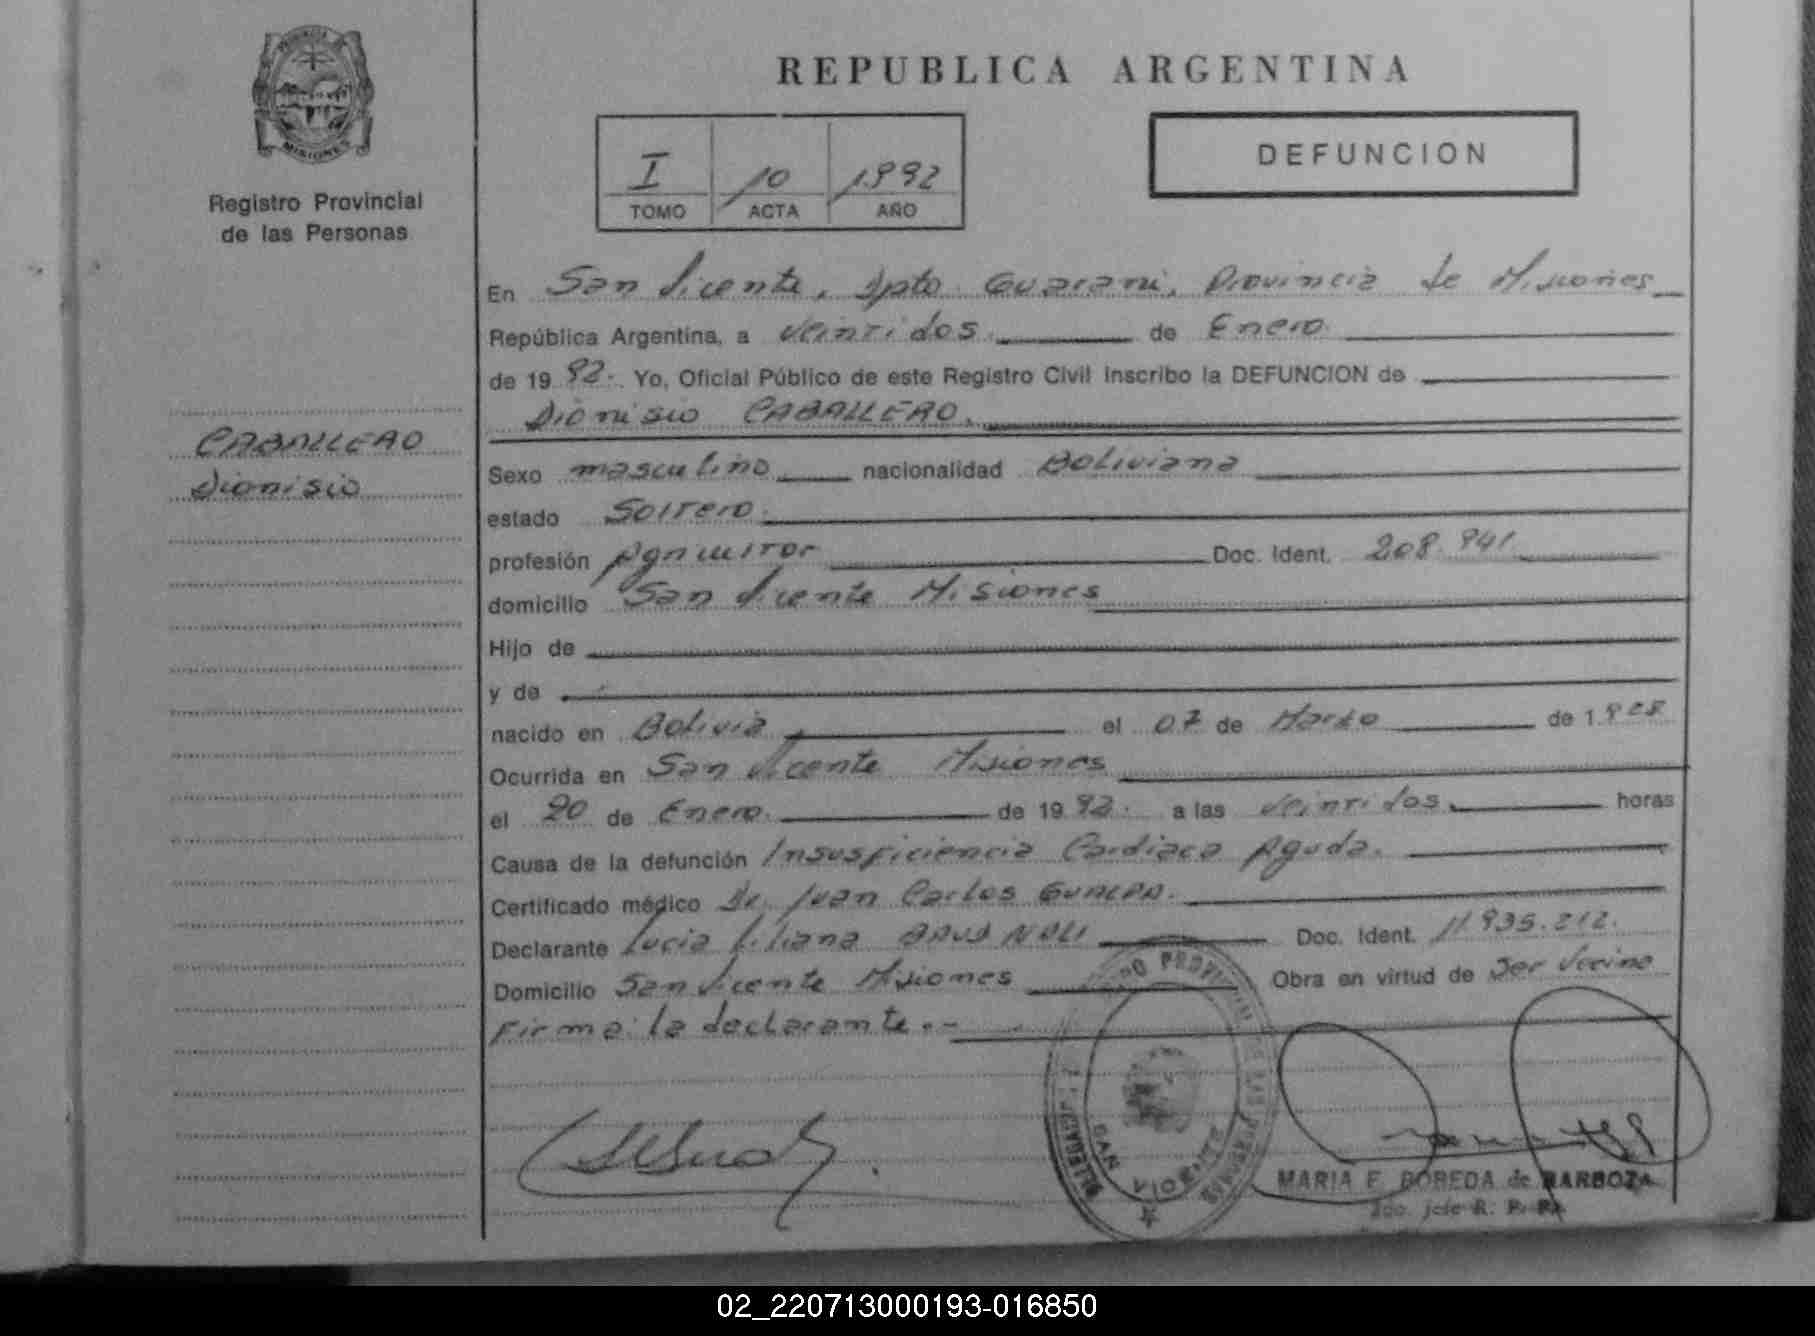 PROVINCIA DE
MISIONES
Registro Provincial
de las Personas
REPUBLICA ARGENTINA
I 10 1992
TOMO ACTA AÑO
DEFUNCION
En San Vicente, Dpto Guarani, Provincia de Misiones
República Argentina, a veintidos de Enero.
de 19 92. Yo, Oficial Público de este Registro Civil inscribo la DEFUNCION de
Dionisio CABALLERO.
CABALLERO
Dionisio
Sexo masculino nacionalidad Boliviana
estado Soltero.
profesión Agricultor Doc. Ident. 208.941
domicilio San Vicente Misiones
Hijo de
y de
nacido en Bolivia el 07 de Marzo de 1.928
Ocurrida en San Vicente Misiones
el 20 de Enero. de 19 92. a las veintidos. horas
Causa de la defunción Insuficiencia Cardiaca Aguda.
Certificado médico Dr. Juan Carlos
Declarante Lucia Liliana Doc. Ident. 11.935.212.
Domicilio San Vicente Misiones Obra en virtud de Ser Vecino
Firma: la declarante.-
SAN VICENTE
MARIA F. BOREDA de BARBOZA
2do. jefe R. P. P.
02_220713000193-016850